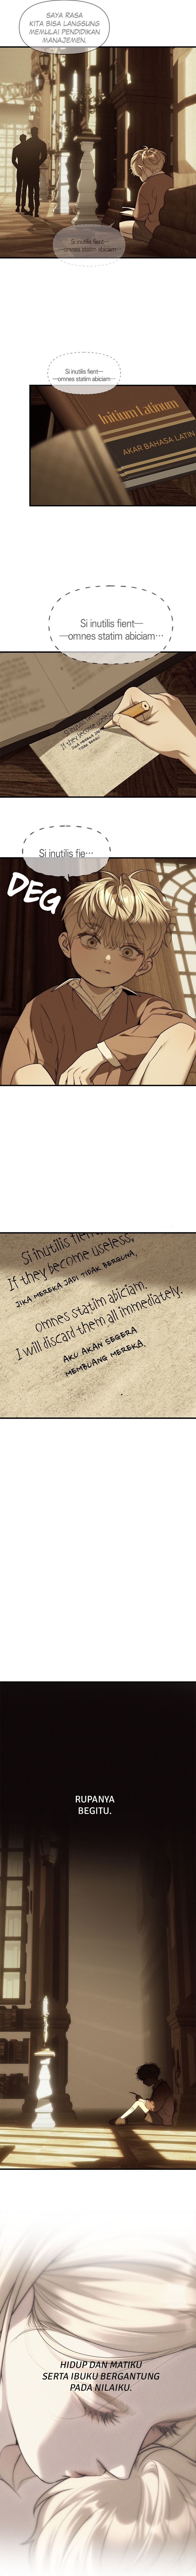 SAYA RASA
KITA BISA LANGSUNG
MEMULAI PENDIDIKAN
MANAJEMEN.
Si inutilis fient—
—omnes statim abiciam
Si inutilis fient—
—omnes statim abiciam—
Initium Latinum
AKAR BAHASA LATIN
Si inutilis fient—
—omnes statim abiciam…
Si inutilis
If they become
JIKA MEREKA JADI
TIDAK BERGUNA,
Si inutilis fie…
DEG
Si inutilis fient,
If they become useless,
JIKA MEREKA JADI TIDAK BERGUNA,
omnes statim abiciam.
I will discard them all immediately.
AKU AKAN SEGERA
MEMBUANG MEREKA.
RUPANYA
BEGITU.
HIDUP DAN MATIKU
SERTA IBUKU BERGANTUNG
PADA NILAIKU.